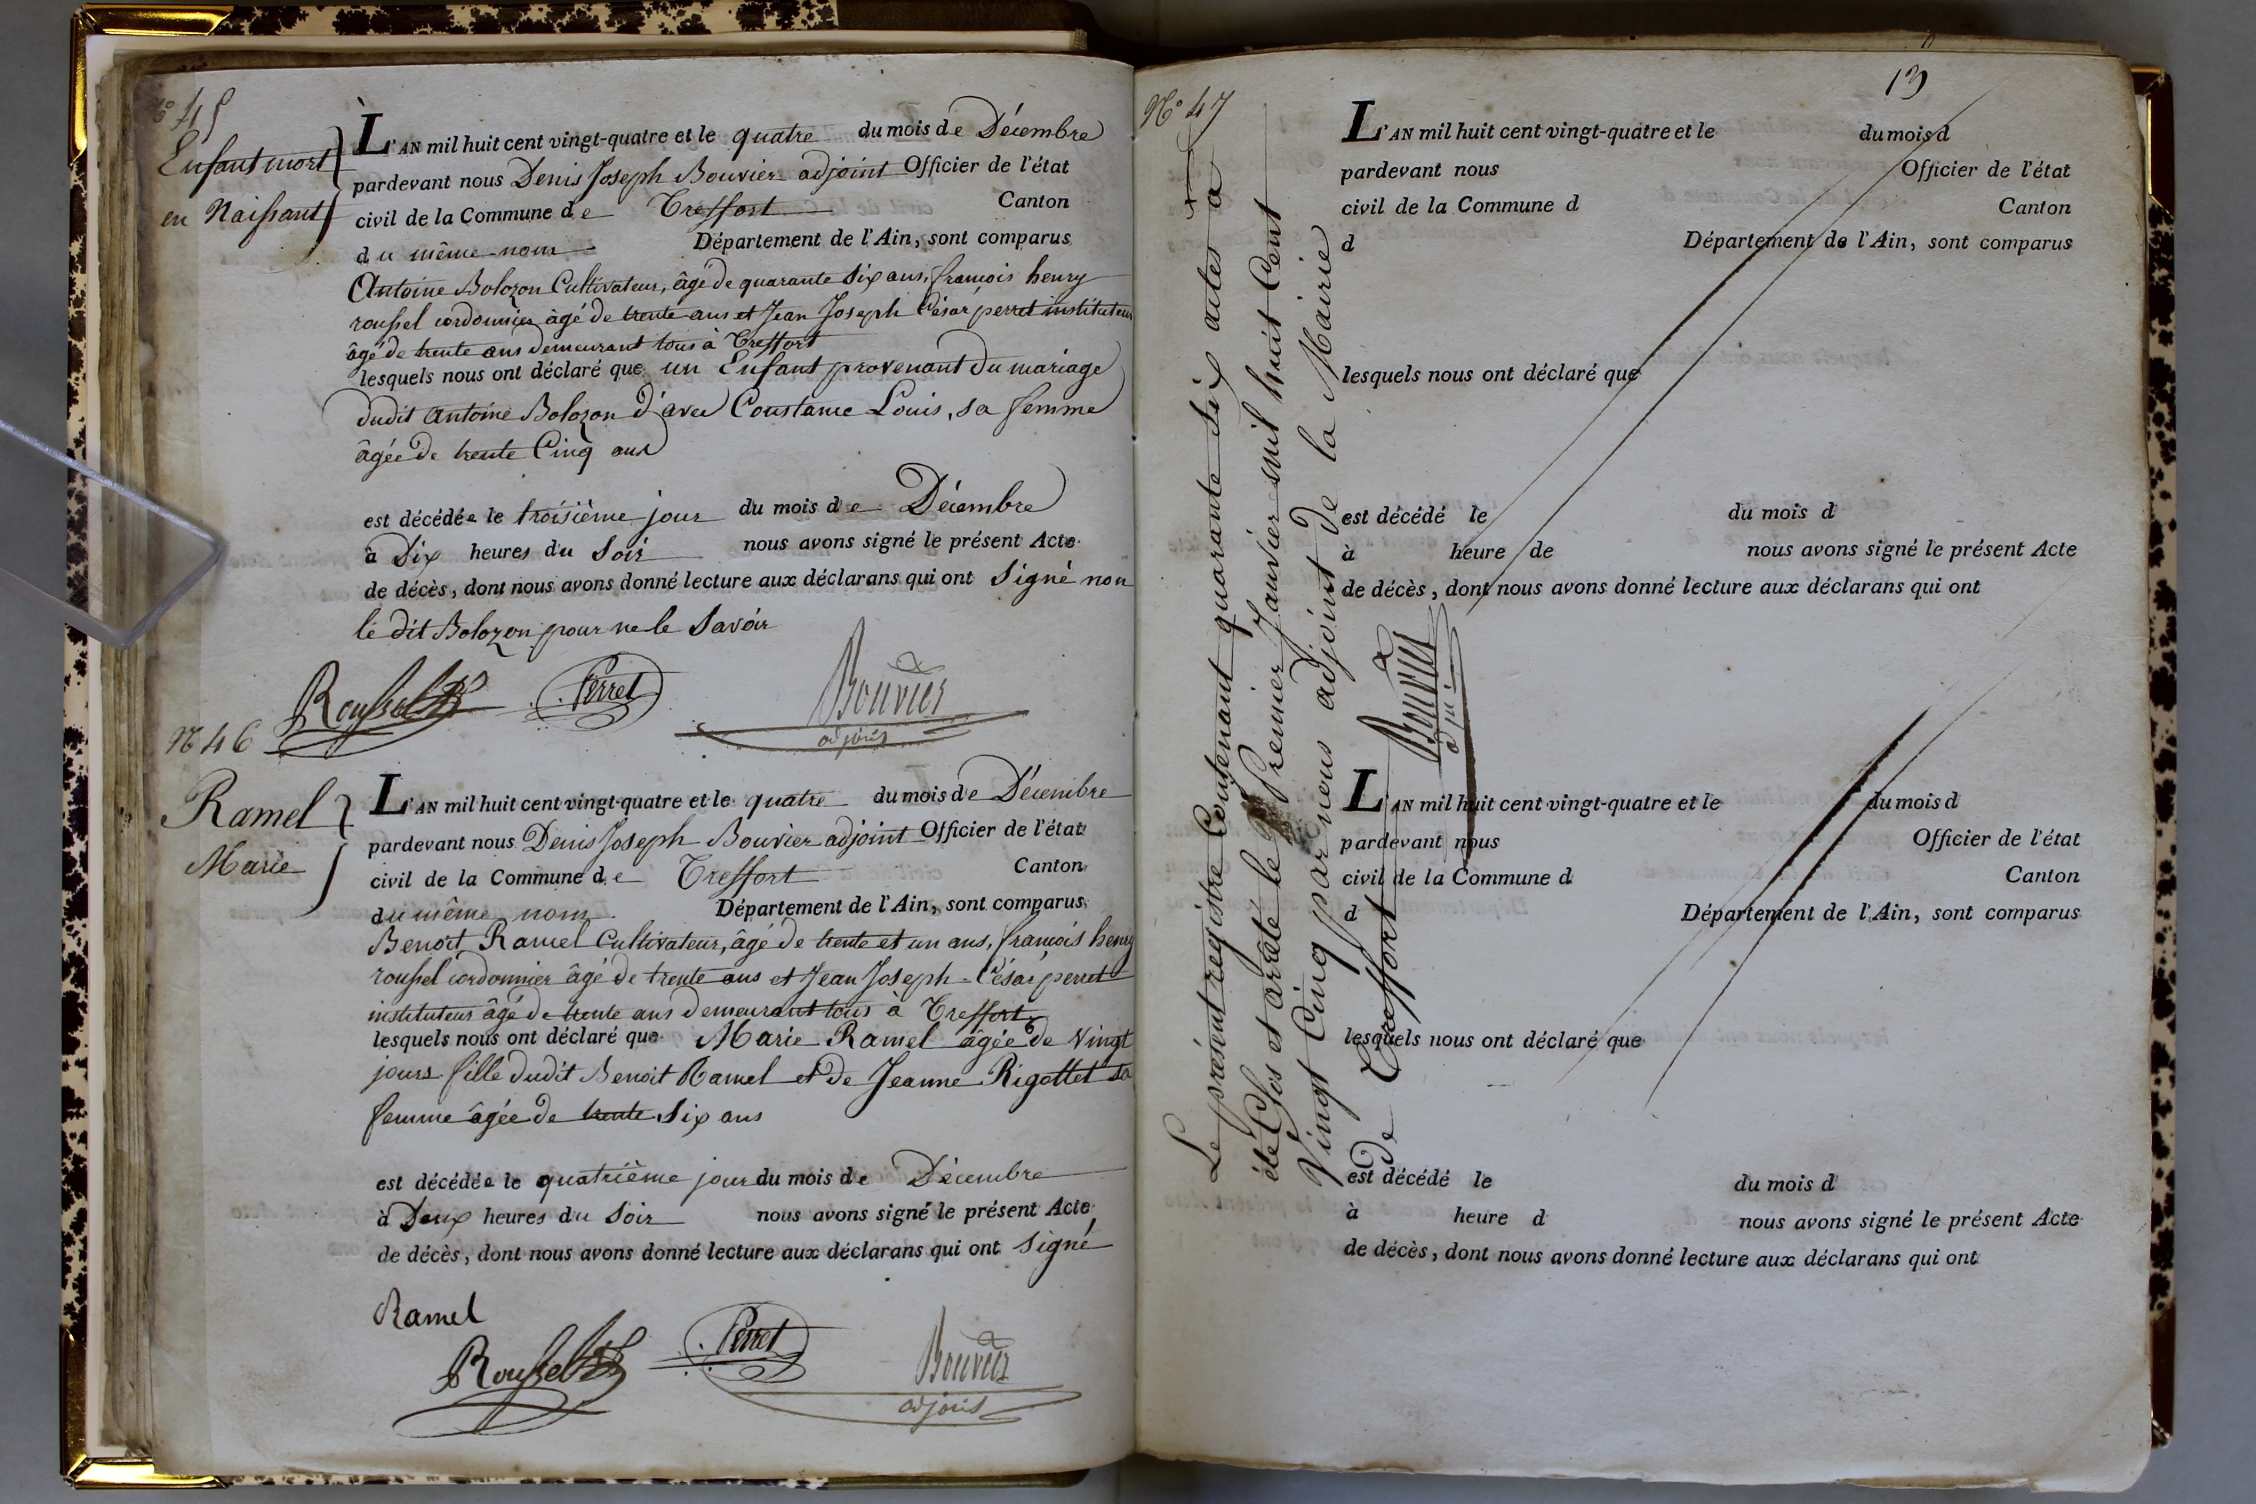 N° 45
Enfant mort
en Naissant
L'AN mil huit cent vingt-quatre et le quatre du mois de Décembre
pardevant nous Denis Joseph Bouvier adjoint Officier de l'état
civil de la Commune de Treffort Canton
du même nom Département de l'Ain, sont comparus
Antoine Bolozon Cultivateur, âgé de quarante six ans, francois henry
roussel cordonnier âgé de trente ans et Jean Joseph César perret instituteur
âgé de trente ans demeurant tous à Treffort
lesquels nous ont déclaré que un Enfant provenant du mariage
dudit Antoine Bolozon d'avec Constance Louis, sa femme
âgée de trente Cinq ans
est décédée le troisième jour du mois de Décembre
à Dix heures du Soir nous avons signé le présent Acte
de décès, dont nous avons donné lecture aux déclarans qui ont Signé non
le dit Bolozon pour ne le Savoir
Roussel Perret Bouvier
adjoint
N° 46
Ramel
Marie
L'AN mil huit cent vingt-quatre et le quatre du mois de Décembre
pardevant nous Denis Joseph Bouvier adjoint Officier de l'état
civil de la Commune de Treffort Canton
du même nom Département de l'Ain, sont comparus
Benoit Ramel Cultivateur, âgé de trente et un ans, francois henry
roussel cordonnier âgé de trente ans et Jean Joseph César perret
instituteur âgé de trente ans demeurant tous à Treffort
lesquels nous ont déclaré que Marie Ramel âgée de Vingt
jours fille dudit Benoit Ramel et de Jeanne Rigottet sa
femme âgée de trente Six ans
est décédée le quatrième jour du mois de Décembre
à Deux heures du Soir nous avons signé le présent Acte
de décès, dont nous avons donné lecture aux déclarans qui ont Signé
Ramel
Roussel Perret Bouvier
adjoint
13
N° 47
Le présent registre Contenant quarante Six actes a
été Clos et arrêté le Premier Janvier mil huit Cent
Vingt Cinq par nous adjoint de la Mairie
de Treffort
Bouvier
adj
L'AN mil huit cent vingt-quatre et le du mois d
pardevant nous Officier de l'état
civil de la Commune d Canton
d Département de l'Ain, sont comparus
lesquels nous ont déclaré que
est décédé le du mois d
à heure de nous avons signé le présent Acte
de décès, dont nous avons donné lecture aux déclarans qui ont
L'AN mil huit cent vingt-quatre et le du mois d
pardevant nous Officier de l'état
civil de la Commune d Canton
d Département de l'Ain, sont comparus
lesquels nous ont déclaré que
est décédé le du mois d
à heure d nous avons signé le présent Acte
de décès, dont nous avons donné lecture aux déclarans qui ont